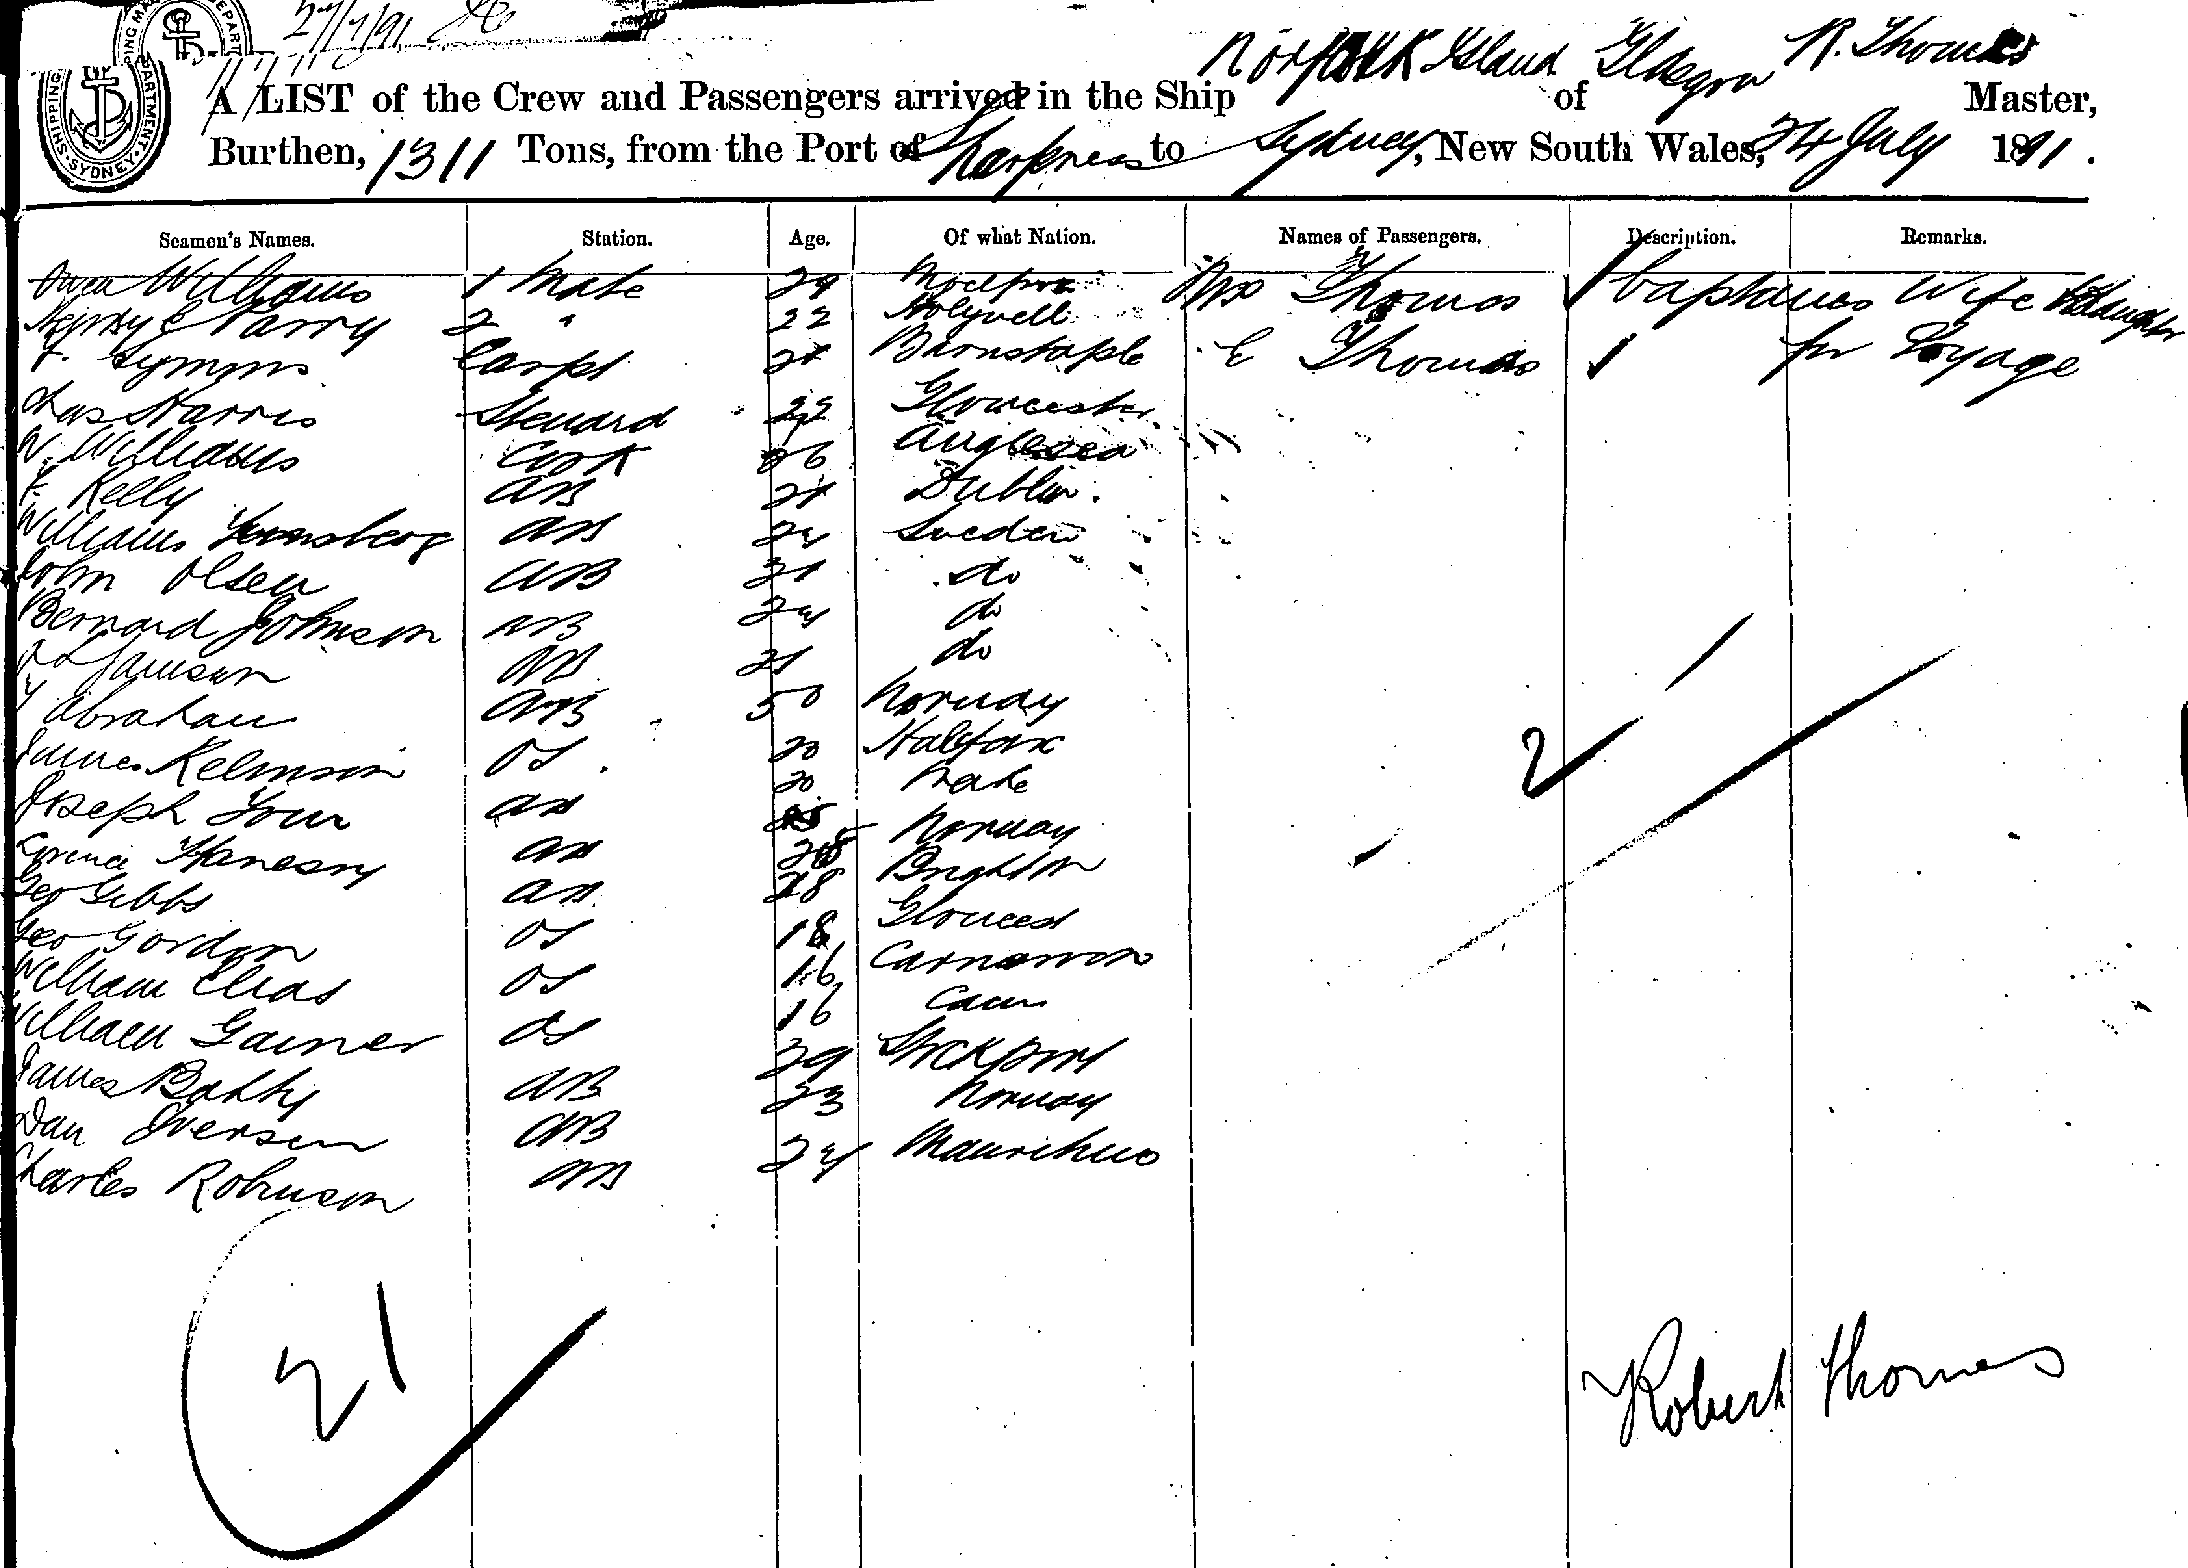 27/7/91
SHIPPING MA DEPART
SHIPPING SYDNEY PARTMENT
Norfolk Island Glasgow R. Thomas
A LIST of the Crew and Passengers arrived in the Ship of Master,
Burthen, 1311 Tons, from the Port of Sharpness to Sydney, New South Wales, 24 July 1891.
Seamen's Names. Station. Age. Of what Nation. Names of Passengers. Description. Remarks.
Owen Williams 1 Mate 29 Mrs Thomas 1 Captaines Wife & daughter
Parry 2 " 22 Holywell E Thomas 1 for Voyage
Symons Carpt Barnstaple
Chas Harris Steward 22 Gloucester
W. Williams Cook 26 Anglesea
Kelly AB 21 Dublin.
William AB 24 Sweden
John Olsen AB 21 do
Bernard Johnson AB 24 do
Jamison AB 21 do
Abraham AB 50 Norway
James OS 20 Halifax
Joseph AB 20
AB 25 Norway
Geo Gibbs AB 28 Brighton
Geo Gordon OS 18 Gloucest
William Elias OS 16 Carnarvon
William Gainer OS 16
James Batty AB 29 Stockport
Dan Iversen AB 23 Norway
Charles Robinson AB 24 Mauritius
2
21
Robert Thomas